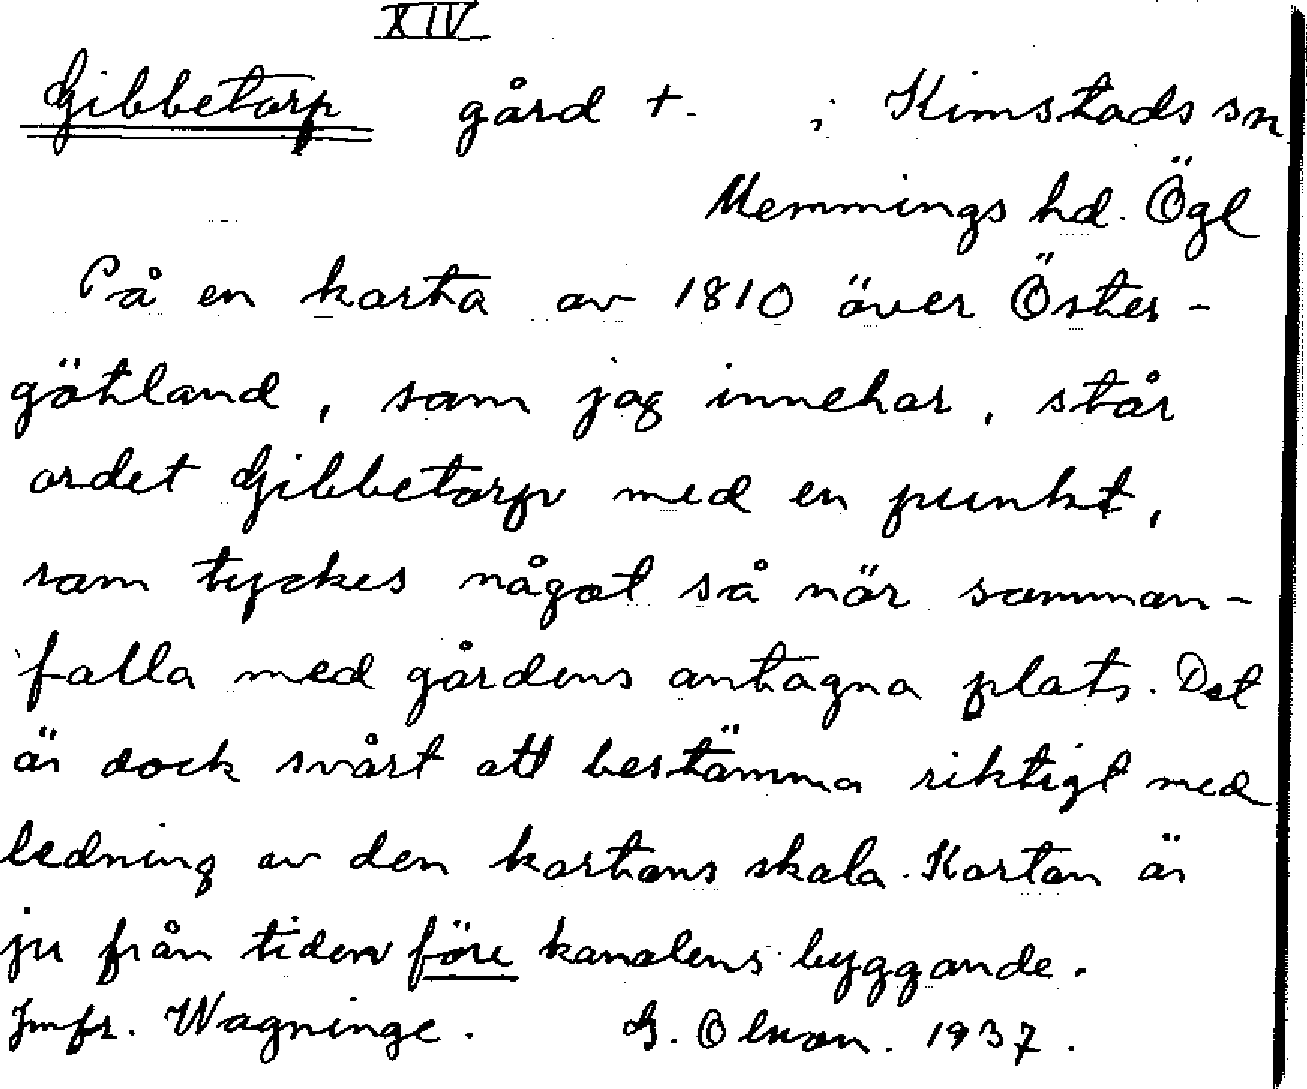 XIV
Gibbetorp gård +. i Kimstads sn
Memmings hd. Ögl
På en karta av 1810 över Öster-
götland, som jag innehar, står
ordet Gibbetorp med en punkt,
som tyckes något så när samman-
falla med gårdens antagna plats. Det
är dock svårt att bestämma riktigt med
ledning av den kartans skala. Kartan är
ju från tiden före kanalens byggande.
Jmfr. Wagninge. G. Olsson. 1937.